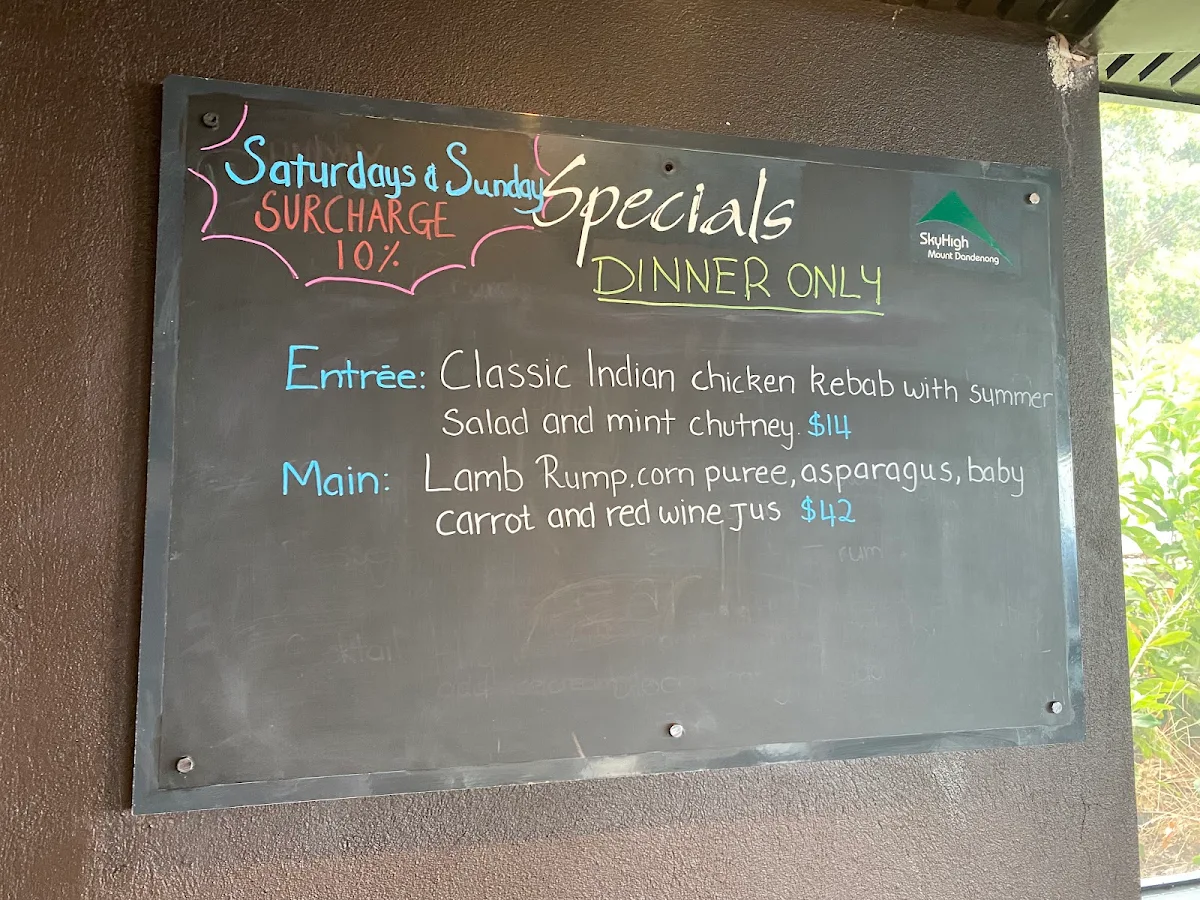 Saturdays & Sunday
SURCHARGE
10%
Specials
DINNER ONLY
SkyHigh
Mount Dandenong
Entrēe: Classic Indian chicken kebab with summer
Salad and mint chutney. $14
Main: Lamb Rump, corn puree, asparagus, baby
carrot and red wine jus $42
rum